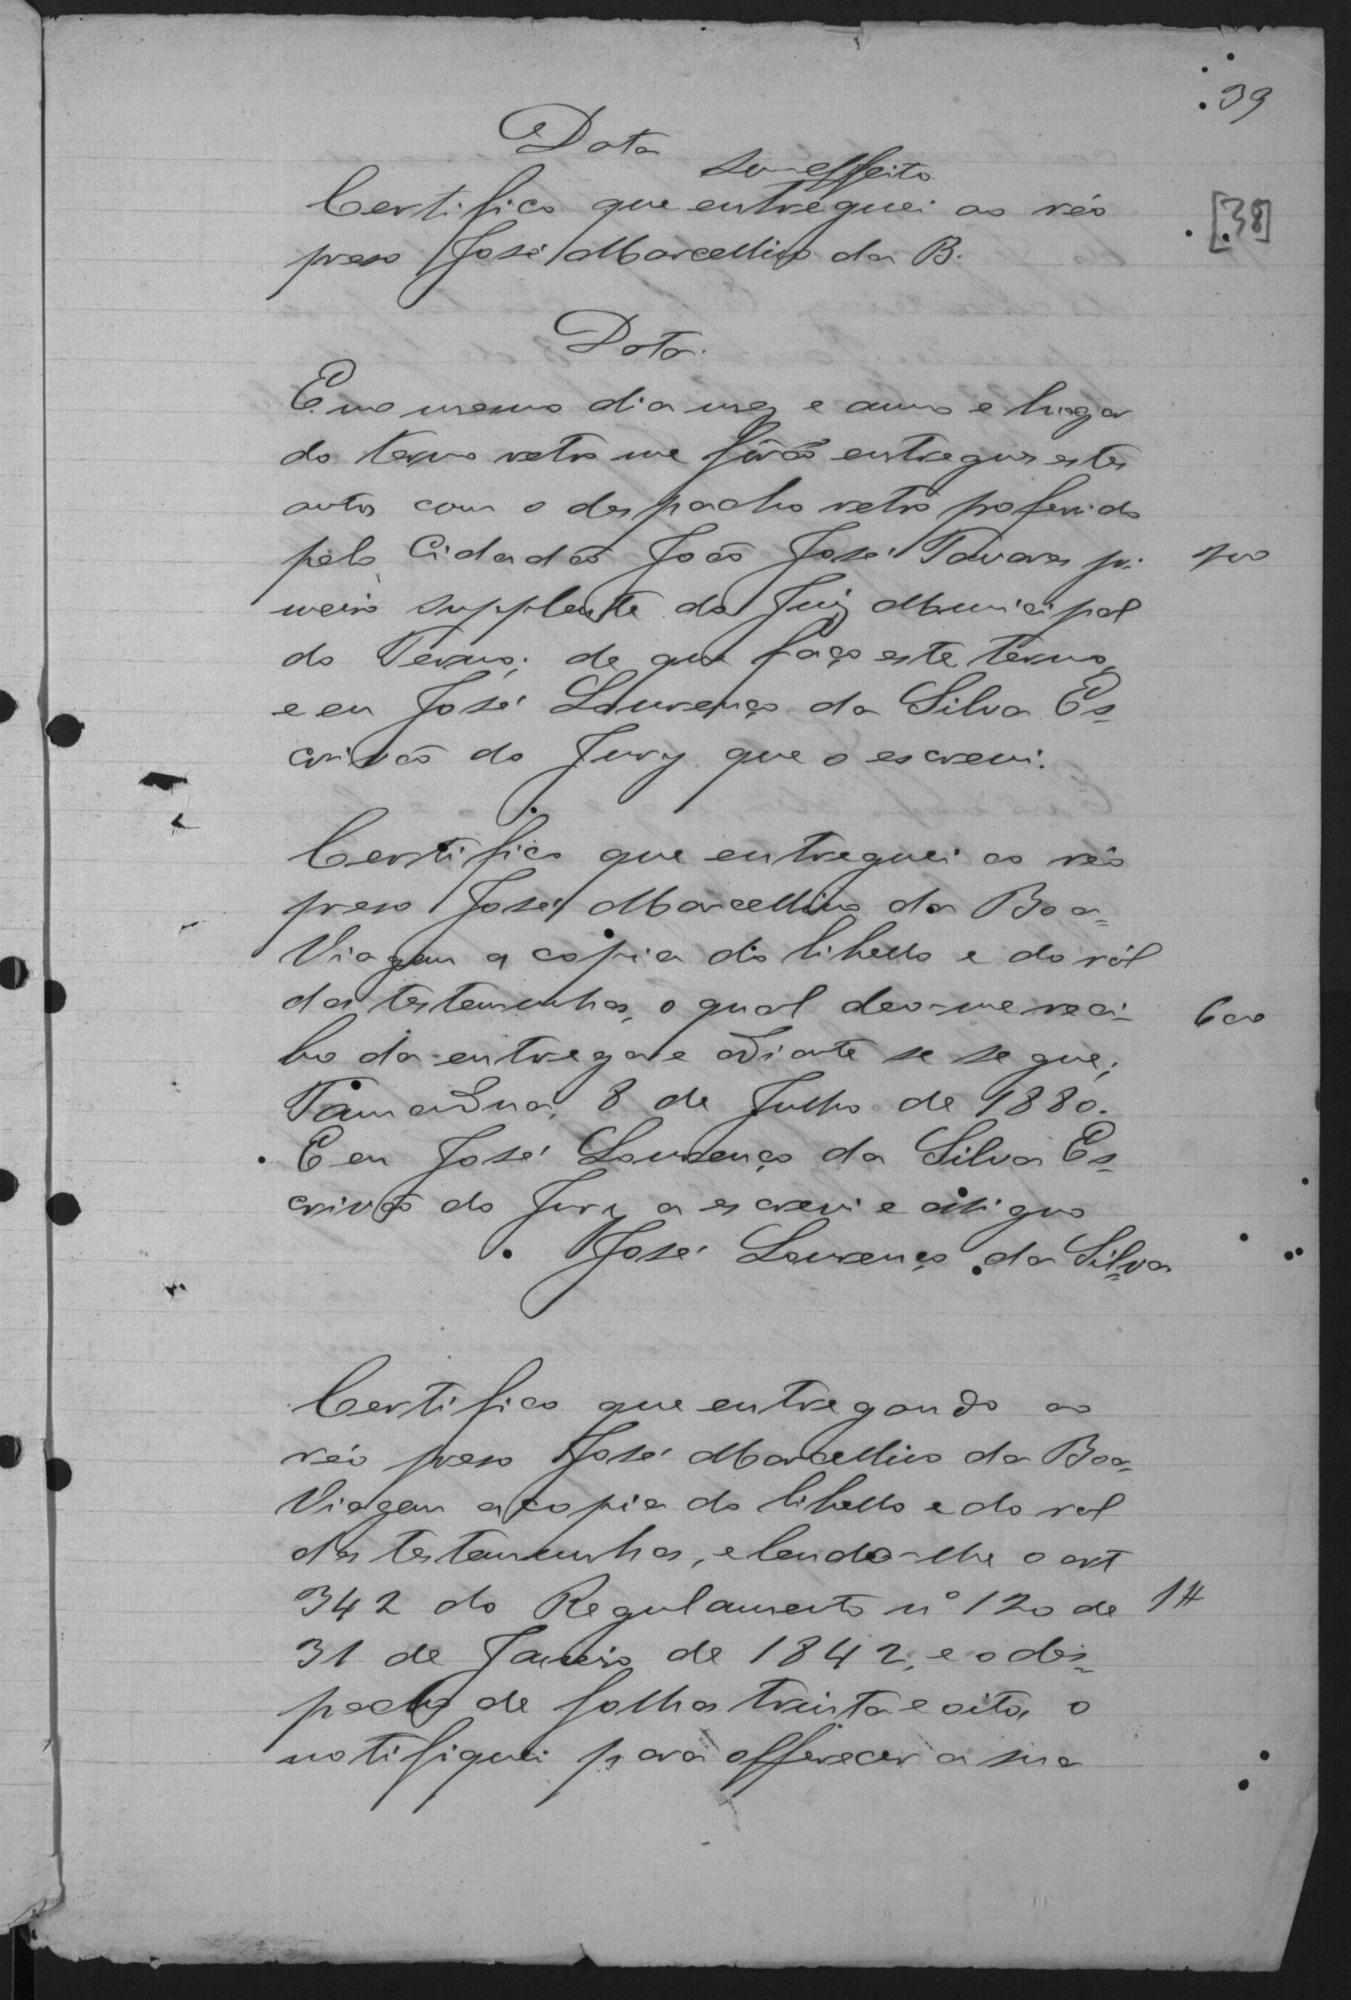 39
Data
sem effeito
Certifico que entreguei ao réo
[38]
preso José Marcellino da B.
Data.
E no mesmo dia mez e anno e lugar
do termo retro me fôrão entregues estes
autos com o despacho retro proferido
pelo Cidadão João José Tavares pri-
meiro supplente do Juiz Municipal
do Termo; de que faço este termo,
e eu José Lourenço da Silva Es=
crivão do Jury que o escrevi.
Certifico que entreguei ao réo
preso José Marcellino da Boa=
Viagem a copia do libello e do ról
das testemunhas, o qual deo-me reci- 600
bo da entrega e adiante se segue;
Tamanduá, 8 de Julho de 1880.
E eu José Lourenço da Silva Es=
crivão do Jury a escrevi e assigno
José Lourenço da Silva
Certifico que entregando ao
réo preso José Marcellino da Boa=
Viagem a copia do libello e do rol
das testemunhas, e lendo-lhe o art
342 do Regulamento nº 120 de 1#
31 de Janeiro de 1842, e o des=
pacho de folhas trinta e oito, o
notifiquei para offerecer a sua